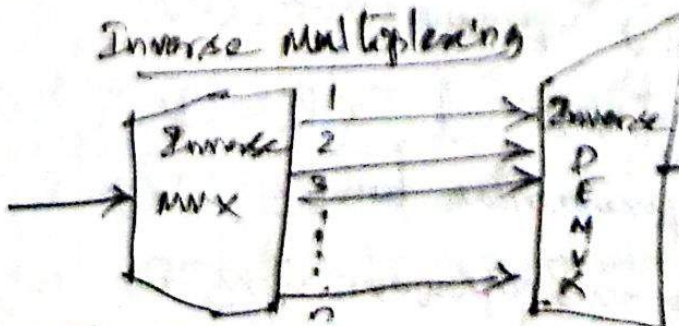 Inverse Multiplexing
Inverse
MUX
1
2
3
n
Inverse
D
E
M
U
X